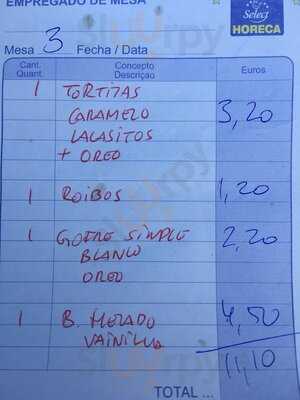 EMPLEADO DE MESA
Select
HORECA
Mesa 3 Fecha / Data
Cant. Concepto Euros
Quant. Descrição
1 TORTITAS
CARAMELO 3,20
LACASITOS
+ OREO
1 ROIBOS 1,20
1 GOFRE SIMPLE 2,20
BLANCO
OREO
1 B. HELADO 4,50
VAINILLA
11,10
TOTAL ...